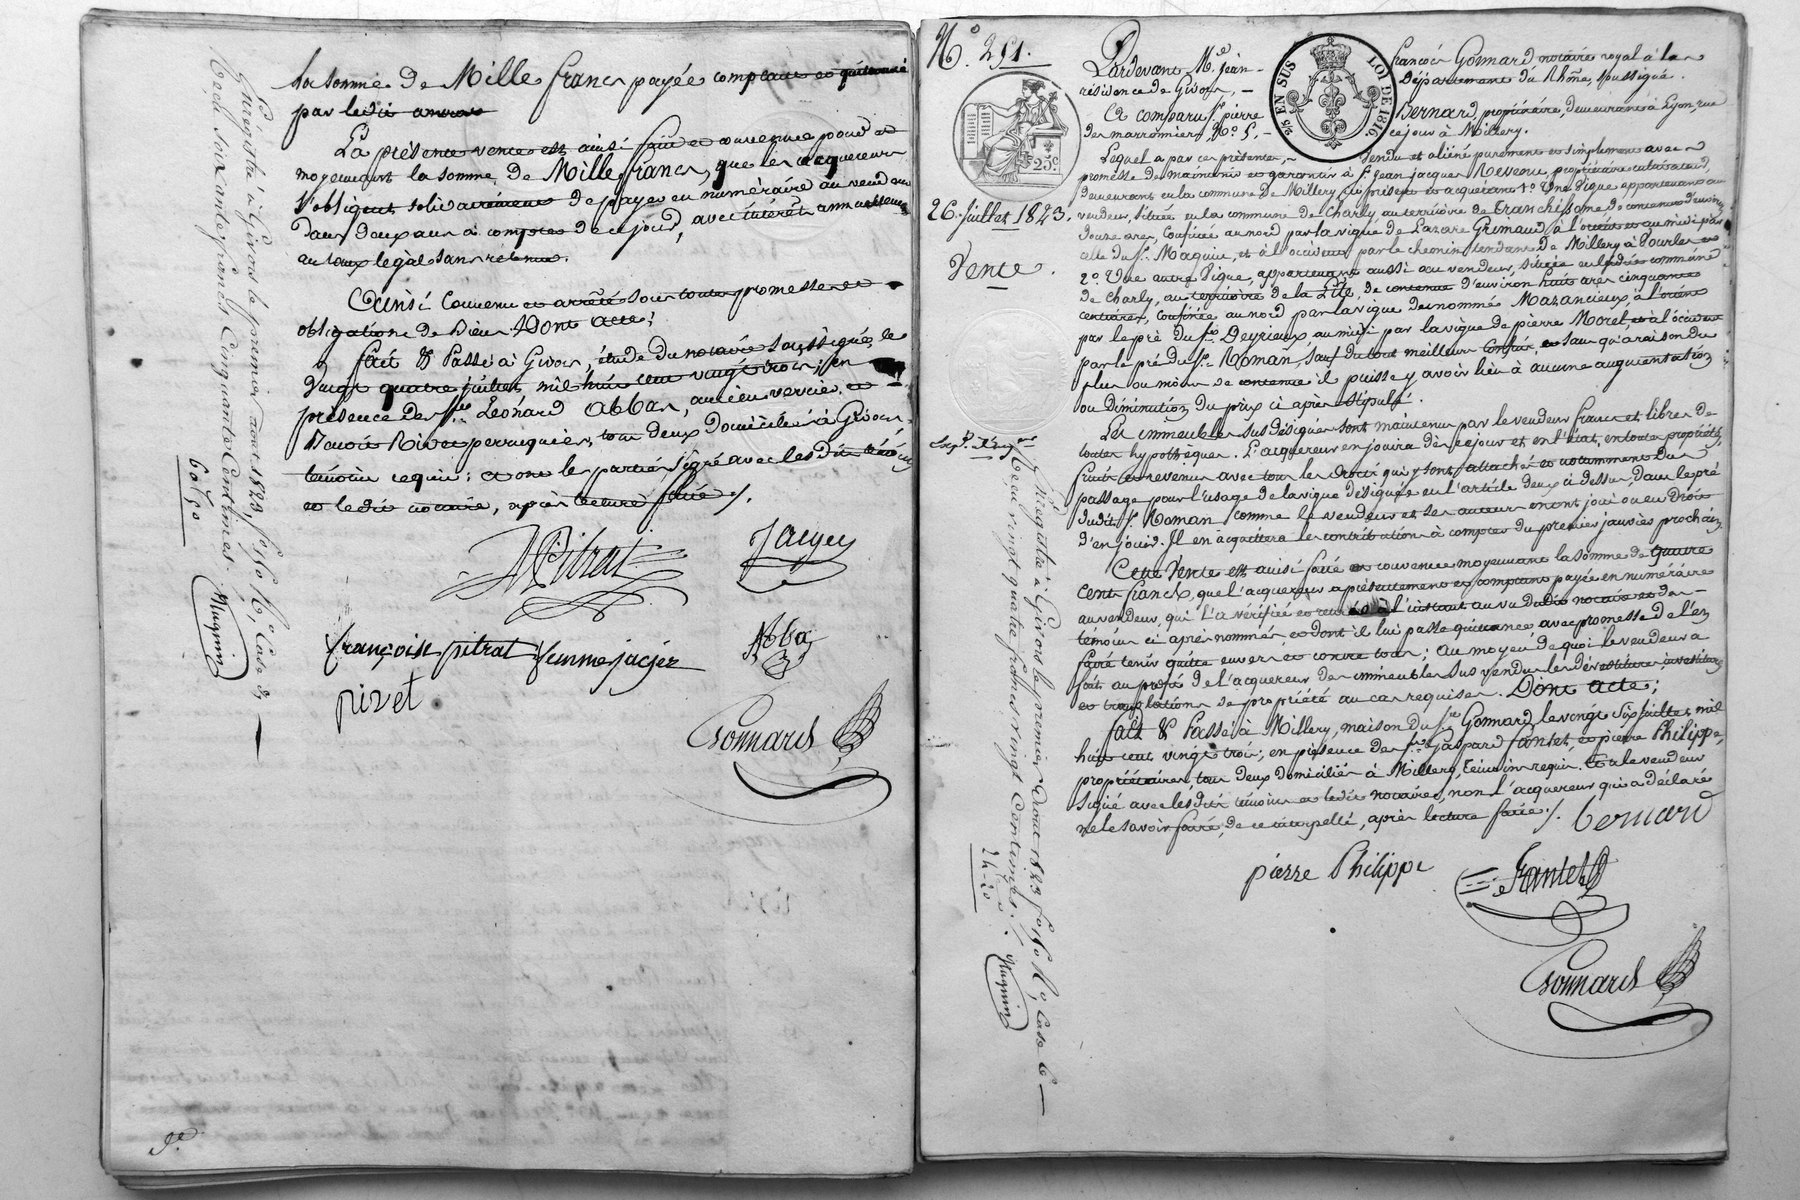 la somme de Mille francs payée comptant et quittancé
par ledit
La présente vente est ainsi faite et convenue pour et
moyennant la somme de Mille francs, que les acquereurs
s'obligent solidairement de payer en numéraire au vendeur
dans deux ans à compter de ce jour, avec intérêt annuellement
au taux légal sans retenue.
Ainsi convenu et arrêté sous toutes promesses et
obligations de Dieu Dont acte;
fait & Passé à Givors, étude du notaire soussigné, le
vingt quatre juillet mil huit cent vingt trois; en
présence de Srs Léonard Abbas, ancien verrier et
Rivet perruquier, tous deux domiciliés à Givors
témoins requis; et ont les parties signé avec lesdits témoins
et ledit notaire, après lecture faite ./.
Pitrat
Jacger
françoise pitrat femme jacger
Abba
rivet
Gonnard
Enrégistré à Givors le premier aout 1823, fo 150 Ro, Case 8,
Reçu soixante francs Cinquante Centimes.
60 „ 50
Mugnier
No 251.
25 c
25 EN SUS LOI DE 1816
26. Juillet 1823.
Vente.
Exp.
Pardevant Me jean-françois Gonnard notaire royal à la
résidence de Givors, - Département du Rhône, soussigné.
A comparu Sr pierre Bernard, propriétaire, demeurant à Lyon rue
des marronniers No 5, - ce jour à Millery.
Lequel a par ces présentes, - Vendu et aliéné purement et simplement avec
promesse de maintenir et garantir à Sr jean jacques Revenu propriétaire cultivateur,
demeurant en la commune de Millery ici présent et acquérant 1o Une Vigne appartenant au
vendeur, située en la commune de Charly au territoire de Tranchissome de contenue d'environ
douze ares, confinée au nord par la vigne de Lazare Grimaud, à l'orient et au midi par
celle du Sr Maguin, et à l'occident par le chemin tendant de Millery à Tourles et
2o Une autre Vigne, appartenant aussi au vendeur, située en ladite commune
de Charly, au territoire de la Lite, de contenue d'environ huit ares cinquante
centiares, confinée au nord par la vigne du nommé Mazancieux, à l'orient
par le pré du Sr Deyrieux au midi par la vigne de pierre Morel, et à l'occident
par le pré du Sr Roman, sauf du tout meilleurs confins, et sans qu'à raison du
plus ou moins de contenue il puisse y avoir lieu à aucune augmentation
ou diminution du prix ci après stipulé.
Les immeubles sus désignés sont maintenus par le vendeur francs et libres de
toutes hypothèques. L'acquereur en jouira dès ce jour et en l'état, en toute propriété,
fruits et revenus avec tous les droits qui y sont attachés et notamment du
passage pour l'usage de la vigne désignée en l'article deux ci dessus, dans le pré
dudit Sr Roman comme le vendeur et ses auteurs en ont joui ou eu Droit
d'en jouir. Il en acquittera les contributions à compter du premier janvier prochain
Cette Vente est ainsi faite et convenue moyennant la somme de quatre
cents francs, que l'acquereur a présentement et comptant payée en numéraire
au vendeur, qui l'a vérifiée et retirée à l'instant au vu dudit notaire et des
témoins ci après nommés et dont il lui passe quittance, avec promesse de l'en
faire tenir quitte envers et contre tous; au moyen de quoi le vendeur a
fait au profit de l'acquereur des immeubles sus vendus les dévestiture, investiture
et translation de propriété au cas requises. Dont acte;
fait & Passé à Millery, maison du Sr Gonnard, le vingt six juillet mil
huit cent vingt trois; en présence de Srs Gaspard fantet, et pierre Philippe,
propriétaires tous deux domiciliés à Millery, témoins requis. Et a le vendeur
signé avec lesdits témoins et ledit notaire, non l'acquereur qui a déclaré
ne le savoir faire, de ce interpellé, après lecture faite ./. bernard
pierre Philippe
fantet
Gonnard
Enrégistré à Givors le premier Aout 1823 fo 150 Ro, Case 6
Reçu vingt quatre francs vingt Centimes.
24 „ 20
Mugnier